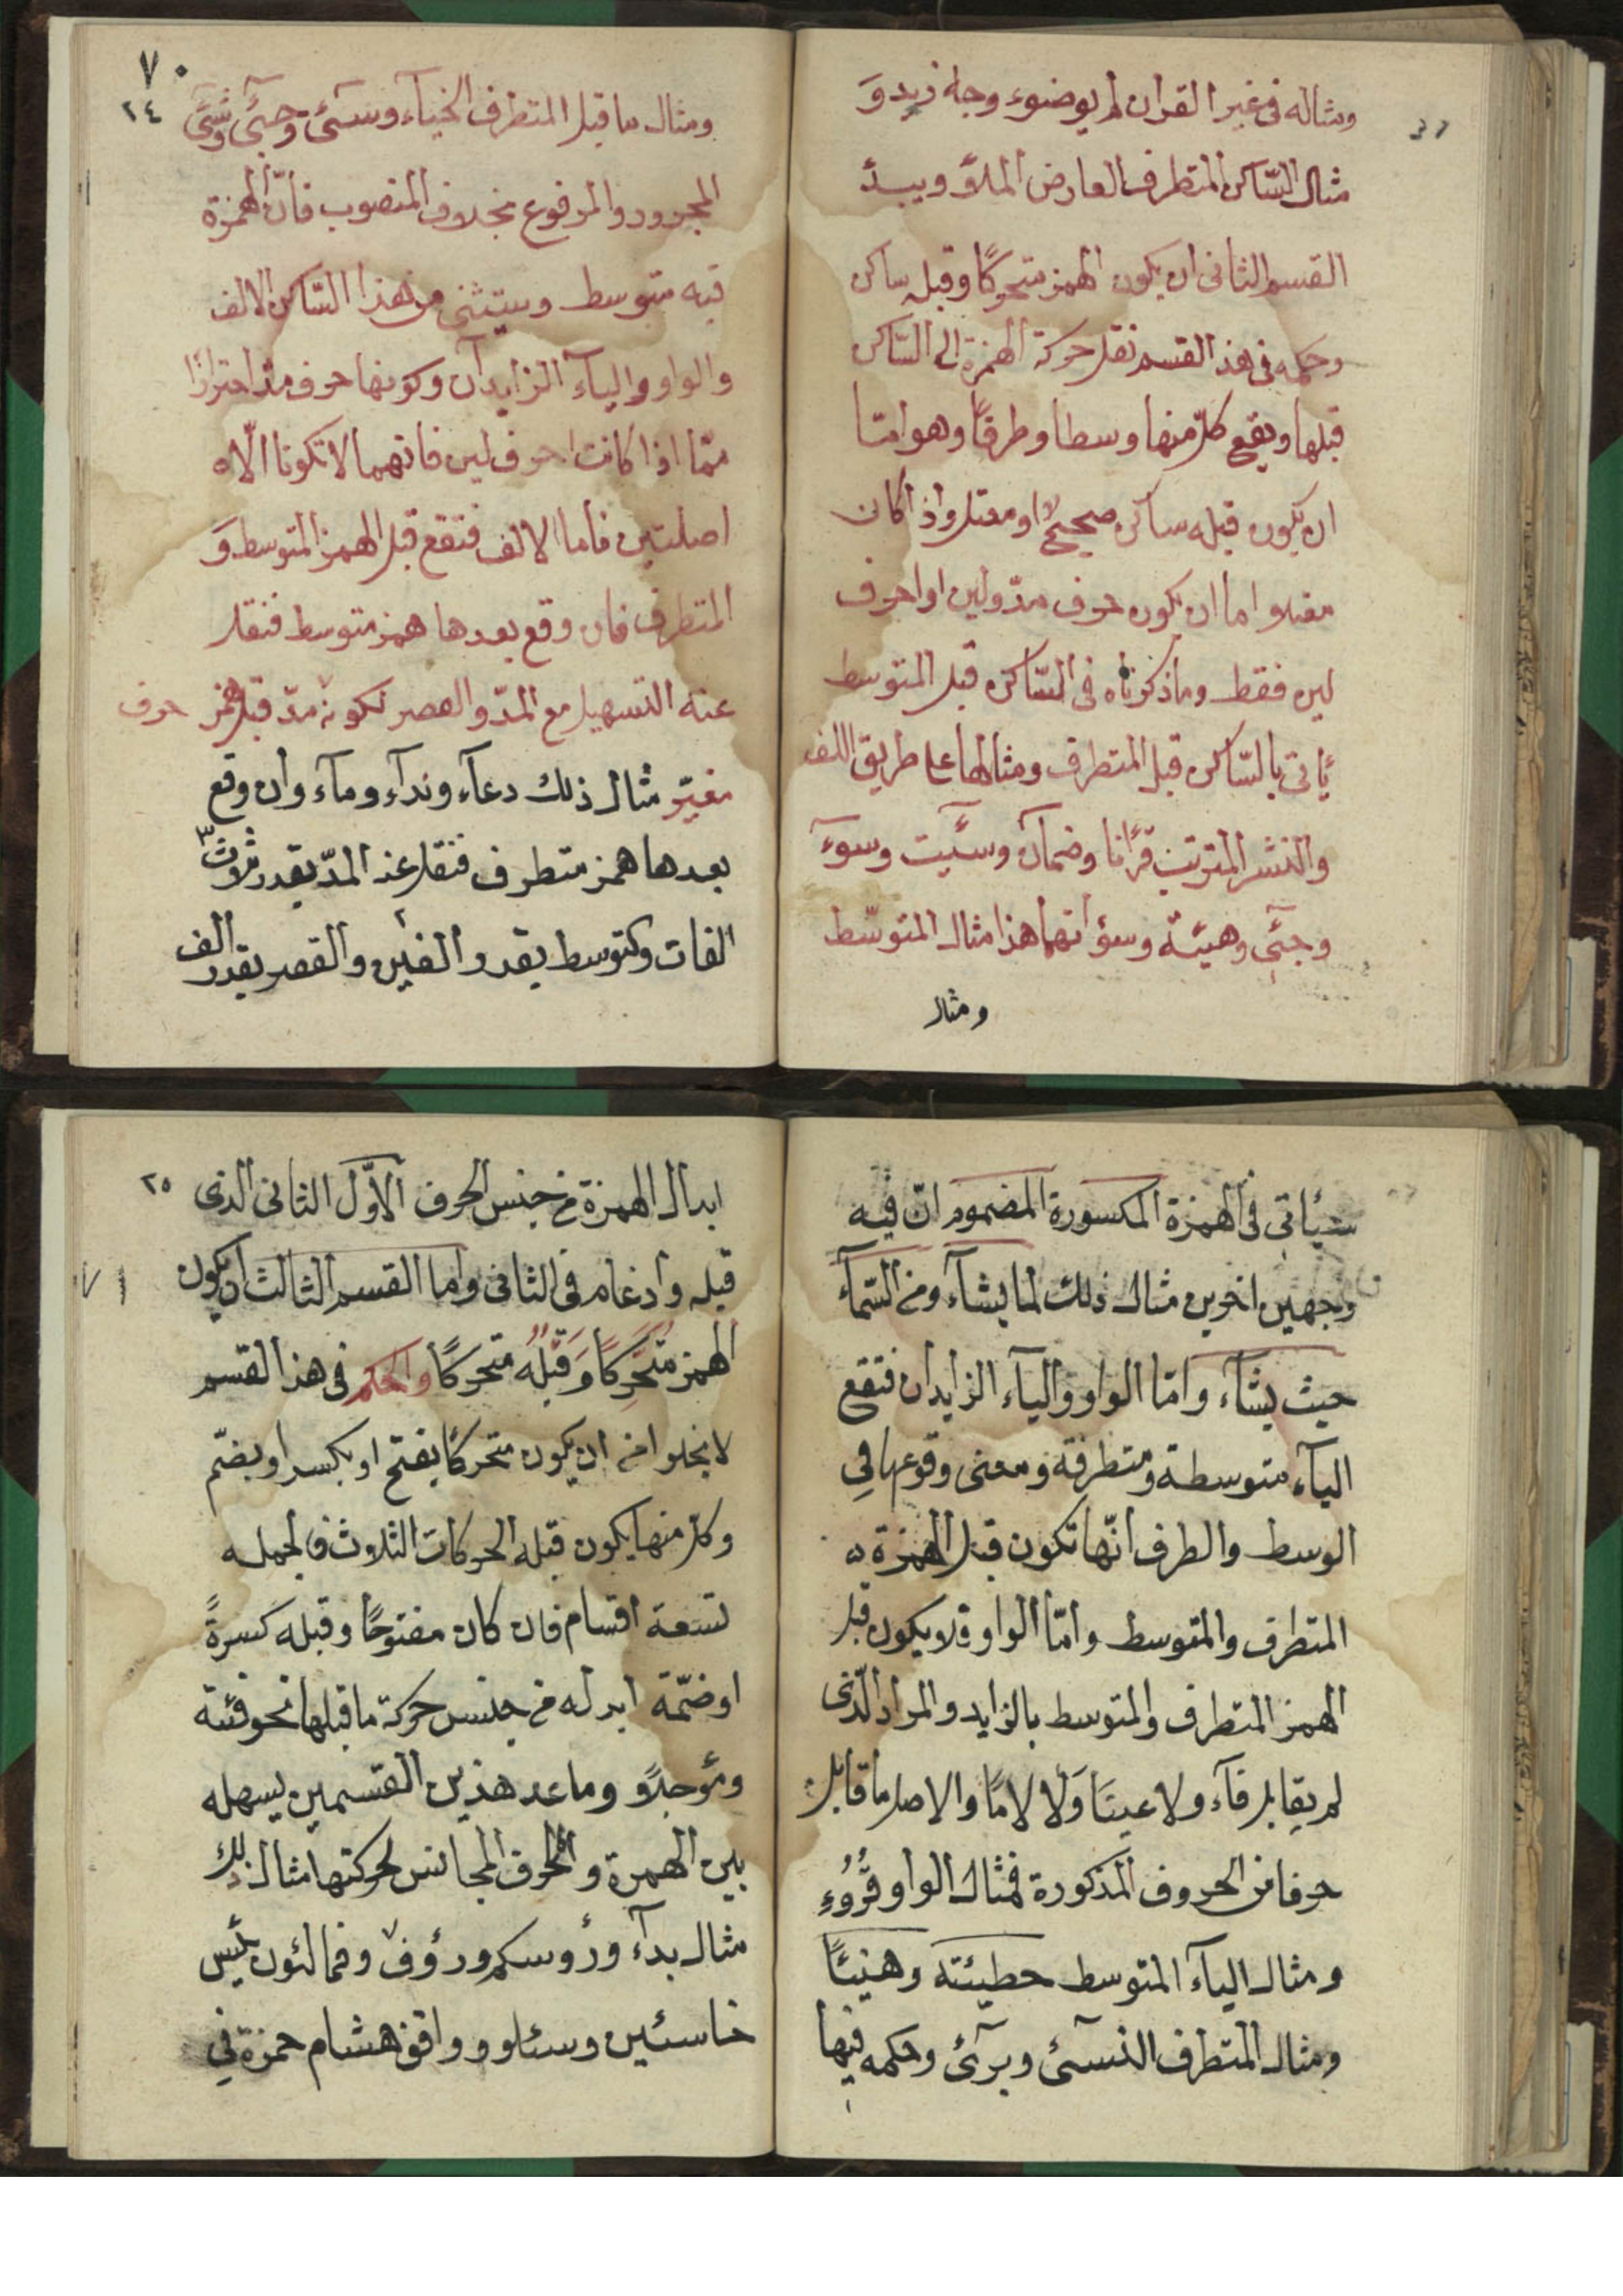 ومثاله فى غير القران لم يوضوء وجاء زيد وَ
مثال السّاكن المتطرف العارض الملأ ويبدئ
القسم الثانى ان يكون الهمز متحركًا وقبله ساكن
وحكمه فى هذ القسم نقل حركة الهمزة الى السّاكن
قبلها ويقع كلّ منها وسطا وطرفًا وهو امّا
ان يكون قبله ساكن صحيح او معتل واذا كان
معتلا اما ان يكون حرف مدّ ولين او احرف
لين فقط وماذكرناه فى السّاكن قبل المتوسط
يأتى بالسّاكن قبل المتطرف ومثالها على طريق اللف
والنشر المترتيب قرأنا وضمأن وسيٓئت وسوٓء
وجئٓ وهيئة وسؤاتهما هذا مثال المتوسّط
ومثال
٧٠
٢٤
ومثال ماقبل المتطرف الخبآء وسيٓئ وجئٓ وشئ
المجرور والمرفوع بخلاف المنصوب فانّ الهمزة
فيه متوسط ويستثنى من هذا السّاكن الالف
والواو والياء الزايدان وكونها حرف مدّ احترازًا
ممّا اذا كانت احرف لين فانهما لا تكونا الّا
اصلتين فاما الالف فتقع قبل الهمز المتوسط وَ
المتطرف فان وقع بعدها همز متوسط فنقل
عنه التسهيل مع المدّ والقصر لكونه مدّ قبل همز حرف
مغيّر مثال ذلك دعآء وندآء ومآء وان وقع
بعدها همز متطرف فنقل عنه المدّ بقدر ثلاث
الفات وكتوسط بقدر الفين والقصر بقدر الف
سيأتى فى الهمزة المكسورة المضموم انّ فيه
وجهين اخرين مثال ذلك لما يشآء ومن السّمآء
حيث يشآء وامّا الواو والياء الزايدان فتقع
اليآء متوسطة ومتطرفة ومعنى وقوعها فى
الوسط والطرف انّها تكون قبل الهمزة
المتطرف والمتوسط وامّا الواو فلا يكون قبل
الهمز المتطرف والمتوسط بالزايد والمراد الّذى
لم يقابل فآء ولا عينَا وَلا لامًا والاصل ما قابل
حرفا من الحروف المذكورة فمثال الواو قُرُوُءٍ
ومثال اليآء المتوسط خطيئته وهنيئًا
ومثال المتطرف النسىٓئ وبرىٓئ وحكمه فيها
٢٥
ابدال الهمزة من جنس الحرف الاوّل الثانى الذى
قبله وادغام فى الثانى واما القسم الثالث ان يكون
٧١
الهمز متحركًا وَقَبْلُه متحركًا والحكم فى هذا القسم
لا يخلوا من ان يكون متحركًا بفتح او بكسر او بضمّ
وكل منها يكون قبله الحركات الثلاث فالجمله
تسعة اقسام فان كان مفتوحًا وقبله كسرةً
اوضمّة ابدله من جنس حركة ماقبلها نحو فئة
ومؤجلًا وماعد هذين القسمين يسهله
بين الهمزة والحرف المجانس لحركتها مثال ذلك
مثال بدأ ورؤوسكم ورؤوف وفمالئون يئس
خاسئين وسئلوو ووافق هشام حمزة فى